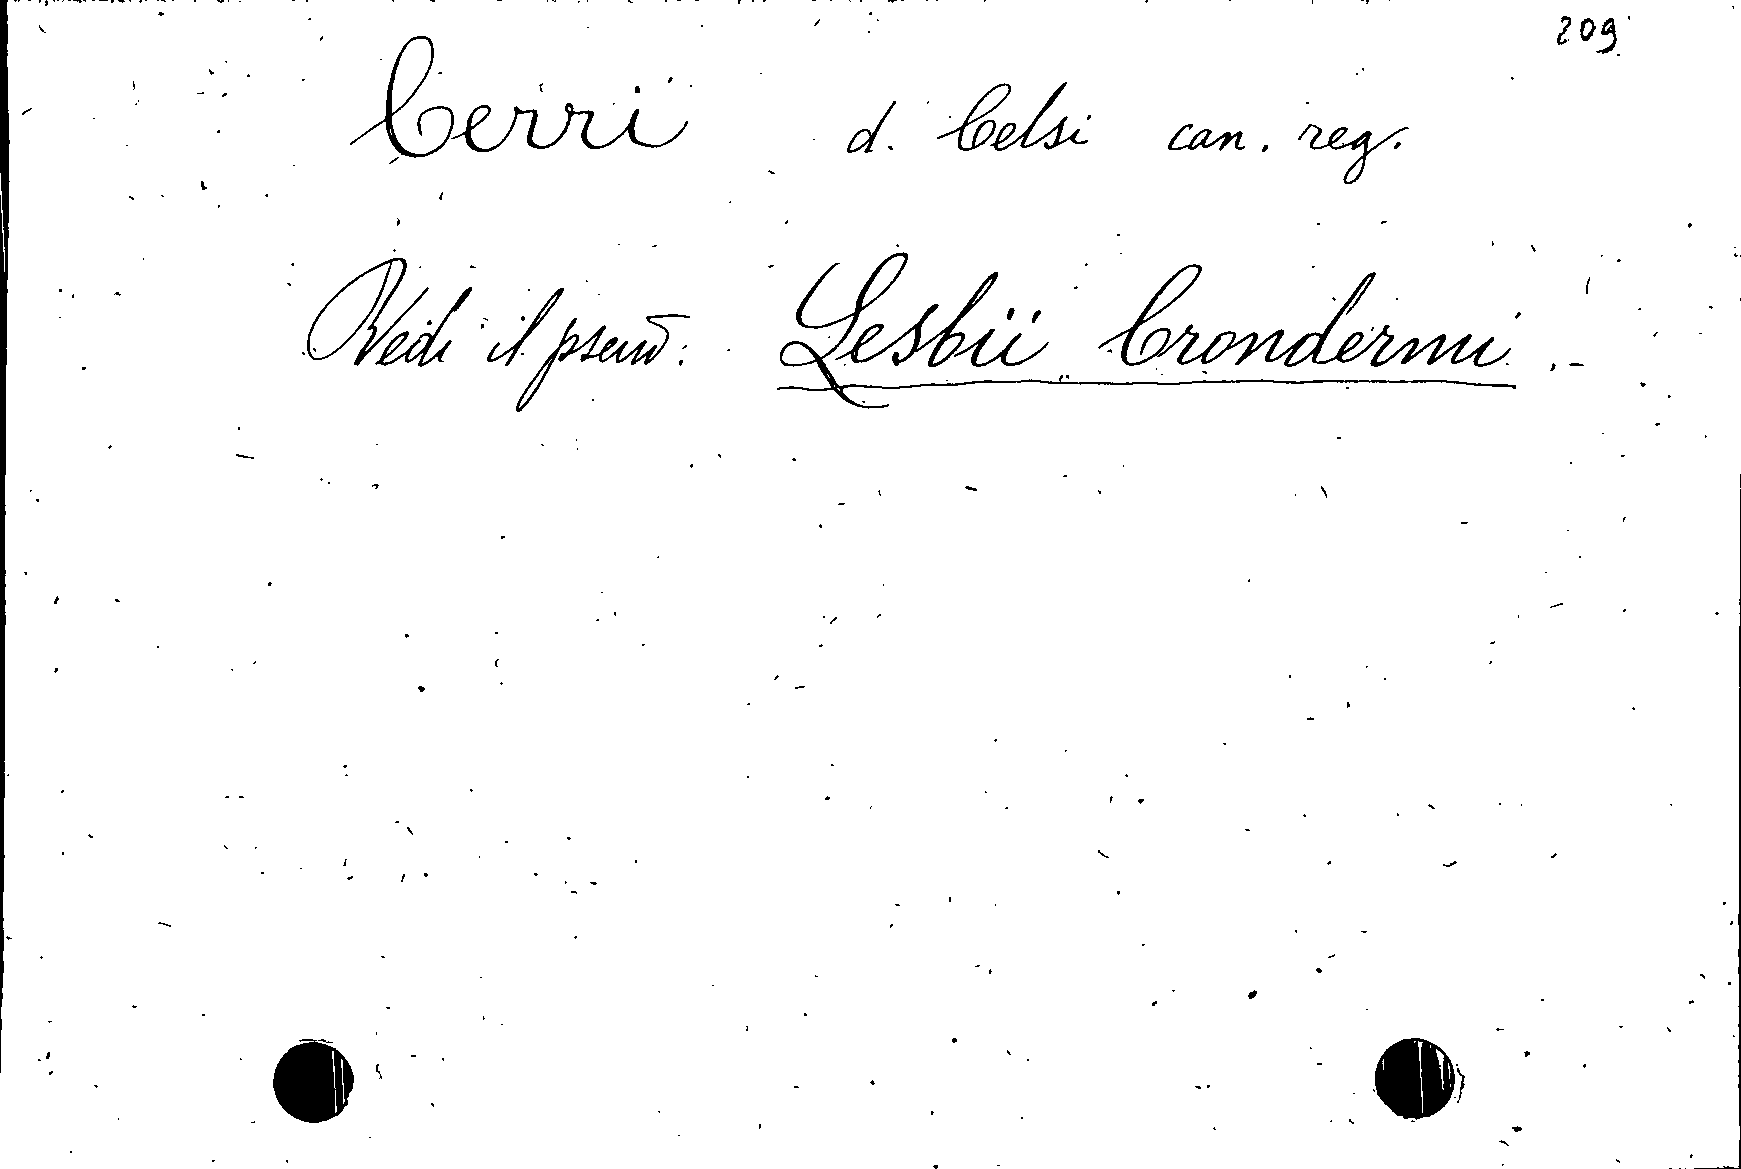 209
Cerri d. Celsi can. reg.
Vedi il pseud. Lesbii Crondermi .-